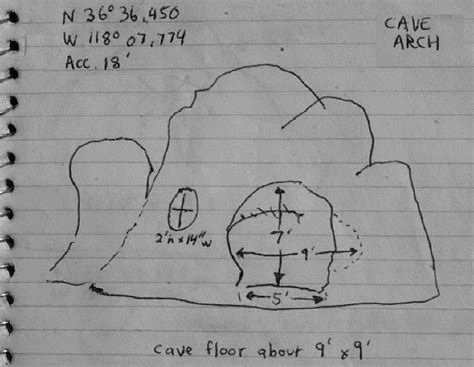 N 36° 36,450
W 118° 07,774
Acc. 18'
CAVE
ARCH
2'h x 14"w
7'
9'
5'
cave floor about 9' x 9'